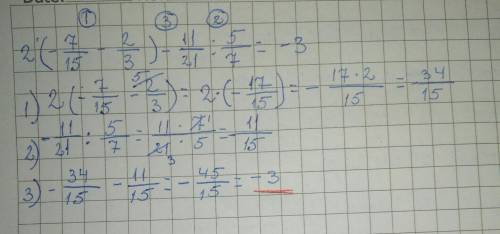 ① ③ ②
2·(-7/15 - 2/3) - 11/21 : 5/7 = -3
1) 2(-7/15 - 5 2/3) = 2·(-17/15) = -17·2/15 = 34/15
2) -11/21 : 5/7 = 11·7 1/21 3·5 = 11/15
3) -34/15 - 11/15 = -45/15 = -3